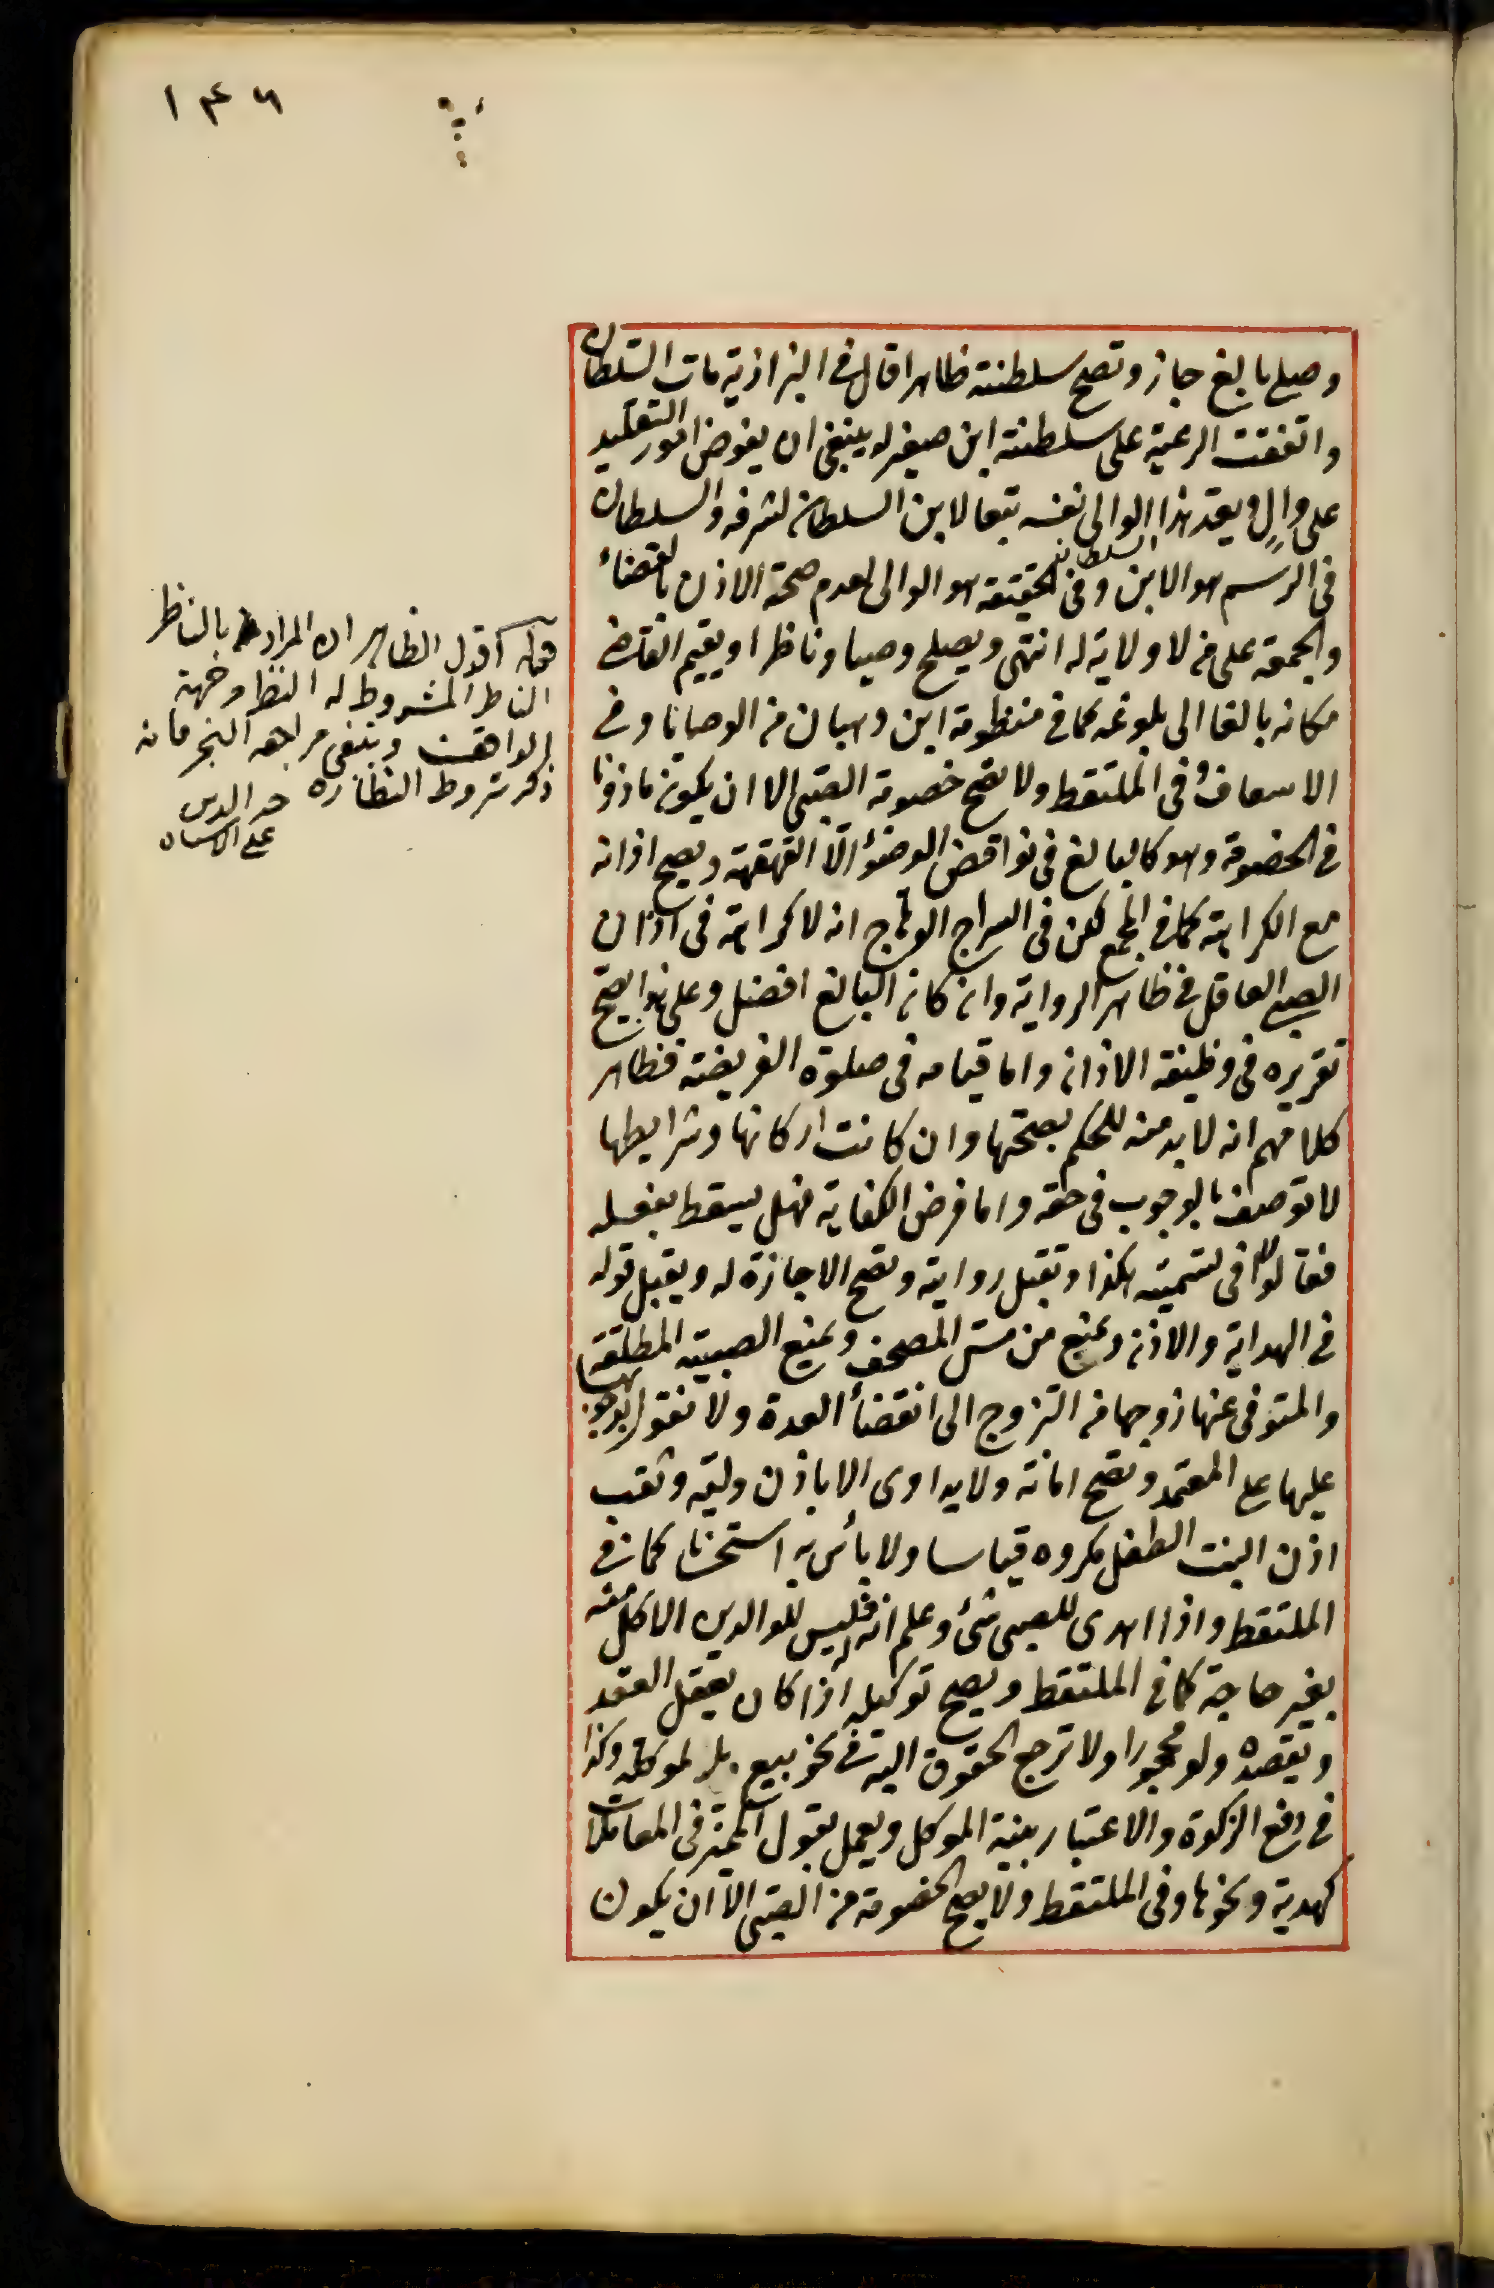 ١٤٦
وصلى بالغ جاز وتصح سلطنته ظاهرا قال في البزازية مات السلطان
واتفقت الرعية على سلطنة ابن صغير له ينبغي ان يفوض امور التقليد
على والٍ ويعد هذا الوالى نفسه تبعا لابن السلطان لشرفه والسلطان
في الرسم هو الابن وفي الحقيقة السلطان هو الوالى لعدم صحة الاذن بالقضاء
والجمعة على من لا ولاية له انتهى ويصلح وصيا وناظرا ويقيم القاضى
مكانه بالغا الى بلوغه كما في منظومة ابن وهبان من الوصايا وفي
الاسعاف وفي الملتقط ولا تصح خصومة الصبى الا ان يكون ماذونا
في الخصومة وهو كالبالغ في نواقض الوضوء الّا القهقهة ويصح اذانه
مع الكراهة كما في المجمع لكن في السراج الوهّاج انه لا كراهة في اذان
الصبى العاقل في ظاهر الرواية وان كان البالغ افضل وعلى هذا يصح
تقريره في وظيفة الاذان واما قيامه في صلوة الفريضة فظاهر
كلامهم انه لا بد منه للحكم بصحتها وان كانت اركانها وشرايطها
لا توصف بالوجوب في حقه واما فرض الكفاية فهل يسقط بفعله
فقالوا في تسميته هكذا وتقبل رواية وتصح الاجازة له ويقبل قوله
في الهداية والاذن ويمنع من مسّ المصحف وتمنع الصبية المطلقة
والمتوفى عنها زوجها من التزوج الى انقضأ العدة ولا نقول بوجوبها
عليها على المعتمد وتصح امانه ولا يداوى الا باذن وليه وثقب
اذن البنت الطفل مكروه قياسا ولا بأس به استحسانا كما في
الملتقط واذا اهدى للصبى شئ وعلم انه له فليس للوالدين الاكل منه
بغير حاجة كما في الملتقط ويصح توكيله اذا كان يعقل العقد
ويقصده ولو محجورا ولا ترجع الحقوق اليه في نحو بيع بل لموكله وكذا
في دفع الزكوة والاعتبار بنية الموكل ويعمل بقول المميّز في المعاملات
كهدية ونحوها وفي الملتقط ولا يصح الخصومة من الصبى الّا ان يكون
قوله اقول الظاهر ان المراد بالناظر
الناظر المشروط له النظر من جهة
الواقف وينبغي مراجعة البحر فانه
ذكر شروط النظارة
على الاشباه